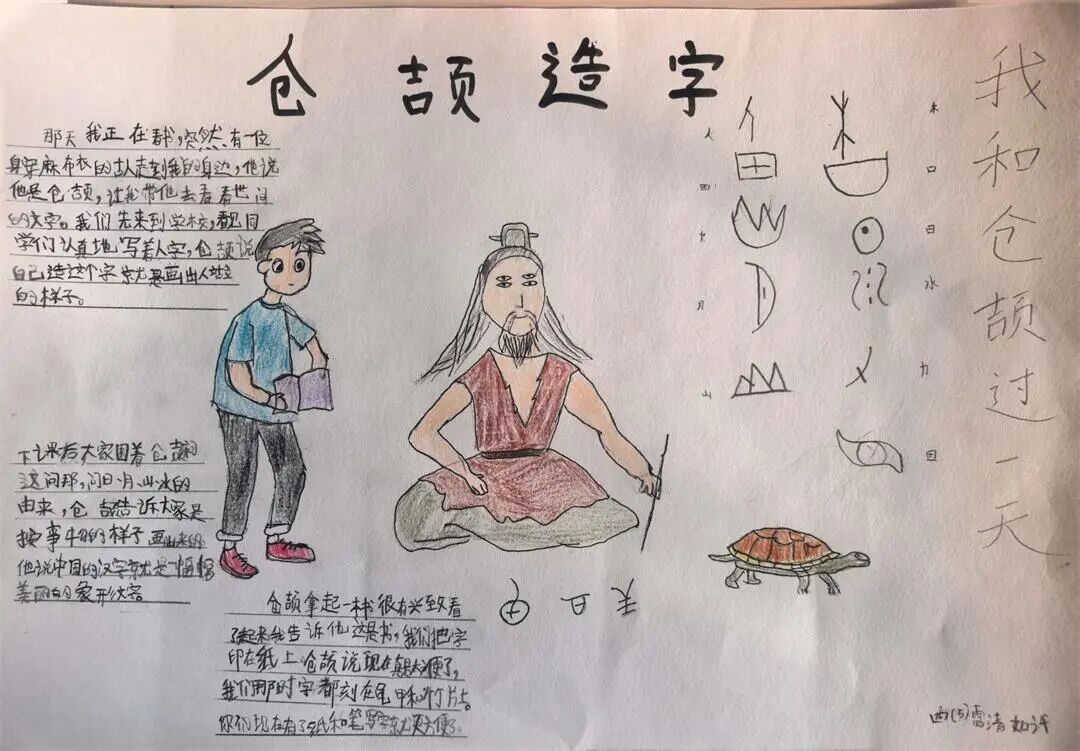 仓颉造字
那天我正在看书,突然有一位
身穿麻布衣的古人走到我的身边,他说
他是仓颉,让我带他去看看世间
的文字。我们先来到学校,看见同
学们认真地写着人字,仓颉说
自己造这个字就是画出人站立
的样子。
下课后大家围着仓颉问
这问那,问日、月、山、水的
由来,仓颉告诉大家是
按事物的样子画出来的
他说中国的汉字就是一幅幅
美丽的象形文字
仓颉拿起一本书很有兴致看
了起来我告诉他这是书,我们把字
印在纸上。仓颉说现在真是太方便了,
我们那时字都刻在龟甲和竹片上。
你们现在有了纸和笔写字就更方便了。
人
田
火
月
山
木
口
日
水
力
我和仓颉过一天